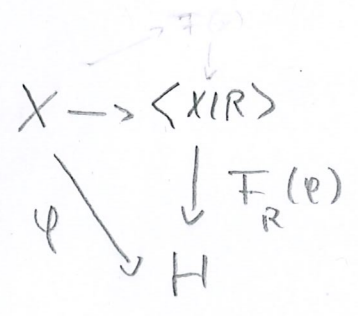 X → <X|R>
φ F_R(φ)
H